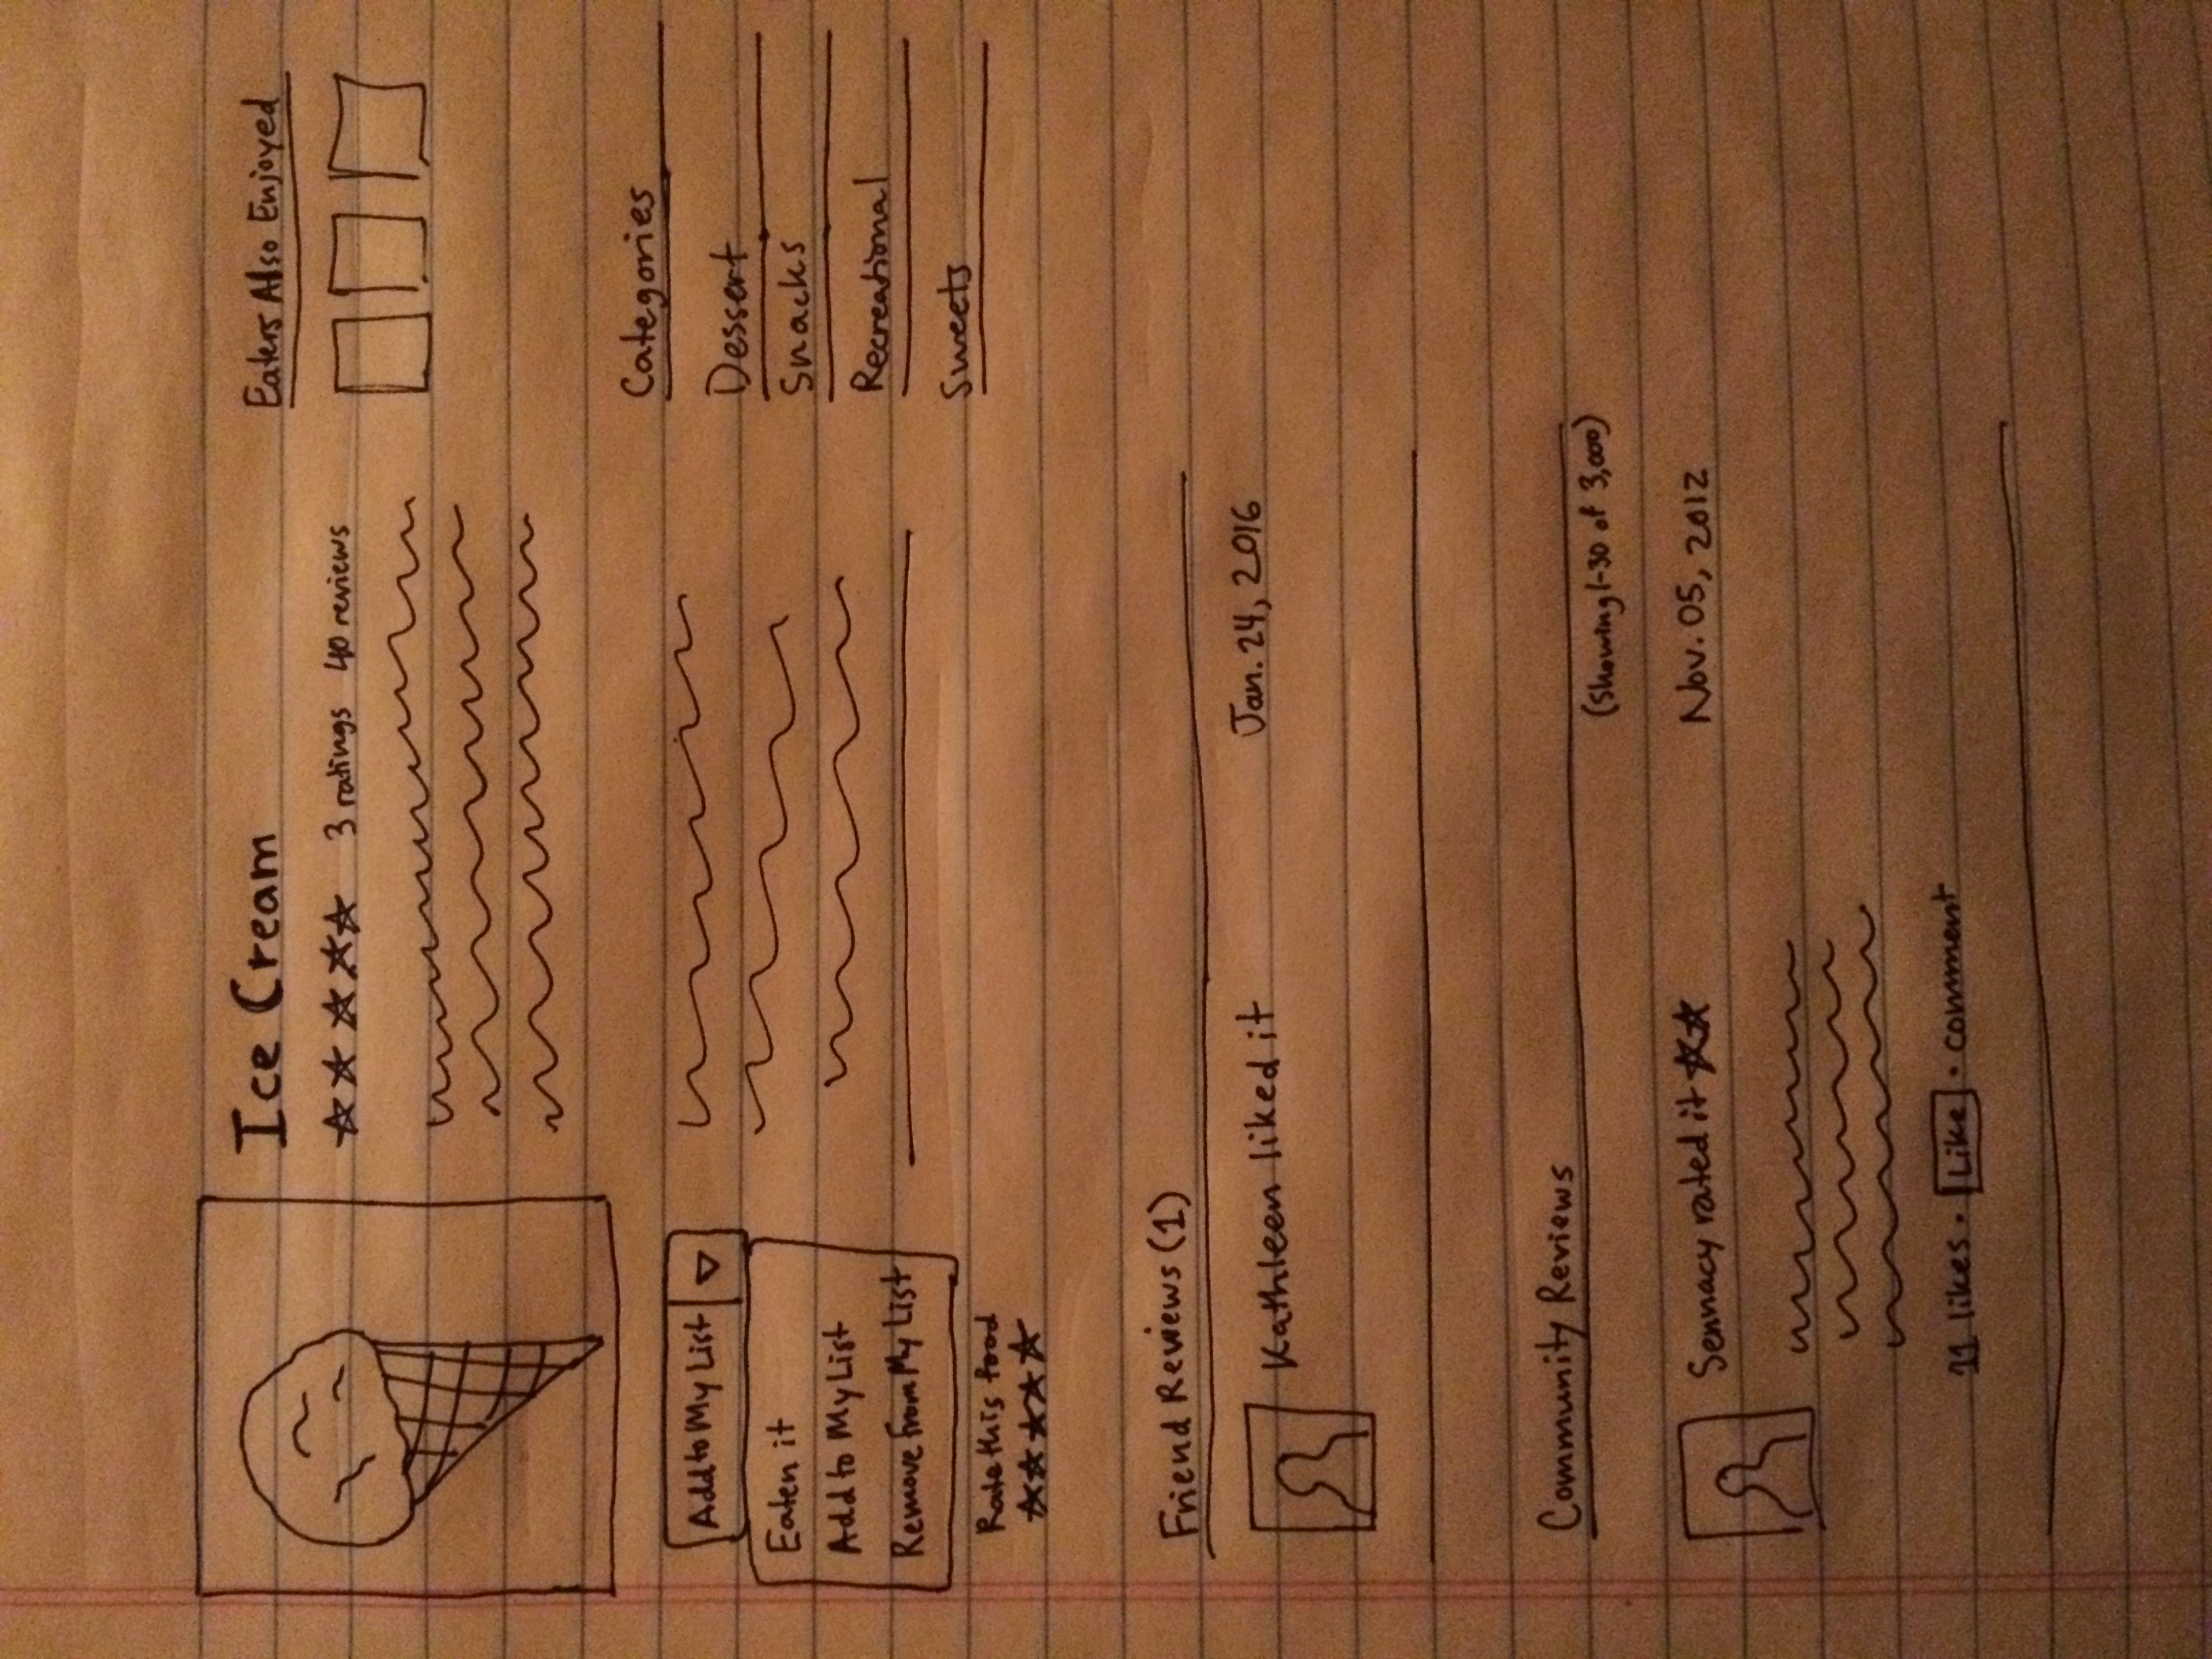 Ice Cream
3 ratings 40 reviews
Eaters Also Enjoyed
Add to My List
Eaten it
Add to My List
Remove from My List
Rate this food
Categories
Dessert
Snacks
Recreational
Sweets
Friend Reviews (1)
Kathleen liked it
Jan. 24, 2016
Community Reviews
(Showing 1-30 of 3,000)
Sennacy rated it
Nov. 05, 2012
11 likes · Like · comment